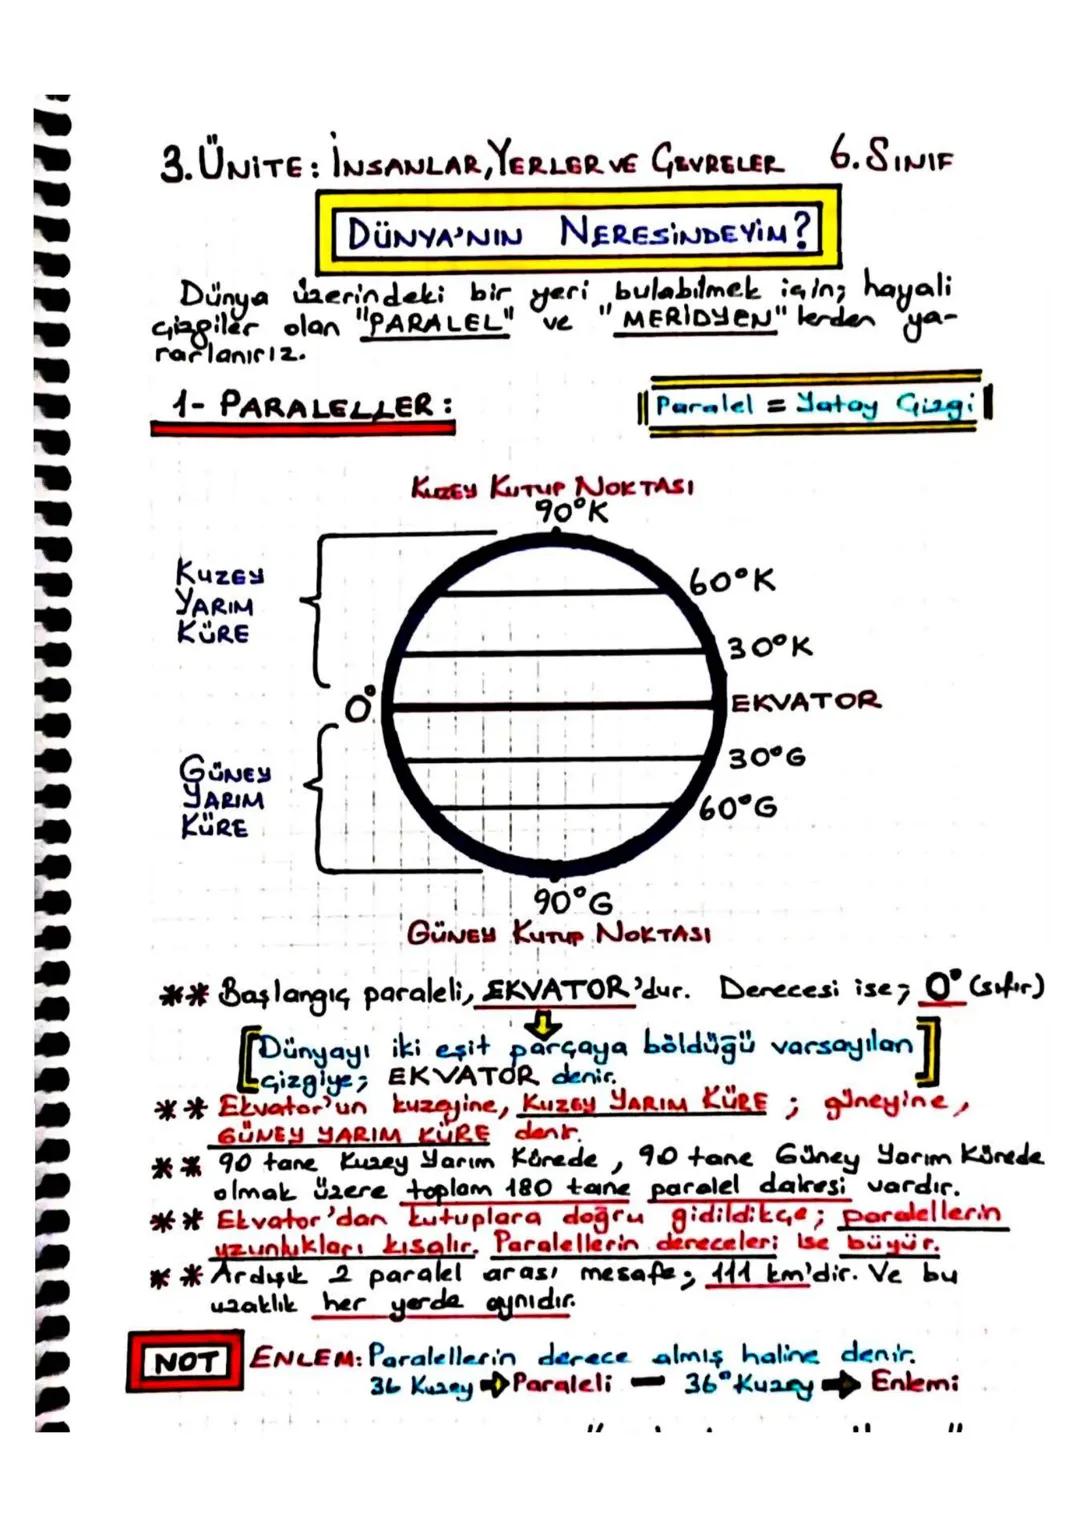 3. ÜNİTE: İNSANLAR, YERLER VE ÇEVRELER 6. SINIF
DÜNYA'NIN NERESİNDEYİM?
Dünya üzerindeki bir yeri bulabilmek için; hayali
çizgiler olan "PARALEL" ve "MERİDYEN" lerden ya-
rarlanırız.
1- PARALELLER:
Paralel = Yatay Çizgi
KUZEY KUTUP NOKTASI
90°K
KUZEY
YARIM
KÜRE
60°K
30°K
0°
EKVATOR
30°G
GÜNEY
YARIM
KÜRE
60°G
90°G
GÜNEY KUTUP NOKTASI
** Başlangıç paraleli, EKVATOR'dur. Derecesi ise; 0° (sıfır)
[Dünyayı iki eşit parçaya böldüğü varsayılan
çizgiye; EKVATOR denir.]
** Ekvator'un kuzeyine, KUZEY YARIM KÜRE ; güneyine,
GÜNEY YARIM KÜRE denir.
** 90 tane Kuzey Yarım Kürede, 90 tane Güney Yarım Kürede
olmak üzere toplam 180 tane paralel dairesi vardır.
** Ekvator'dan kutuplara doğru gidildikçe; paralellerin
uzunlukları kısalır. Paralellerin dereceleri ise büyür.
** Ardışık 2 paralel arası mesafe; 111 km'dir. Ve bu
uzaklık her yerde aynıdır.
NOT ENLEM: Paralellerin derece almış haline denir.
36 Kuzey → Paraleli — 36° Kuzey → Enlemi